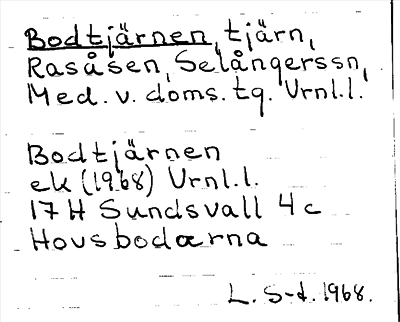 Bodtjärnen, tjärn,
Rasåsen, Selångerssn,
Med. v. doms. tg. Vrnl.l.
Bodtjärnen
ek (1968) Vrnl.l.
17 H Sundsvall 4c
Hovsbodarna
L. S-d. 1968.